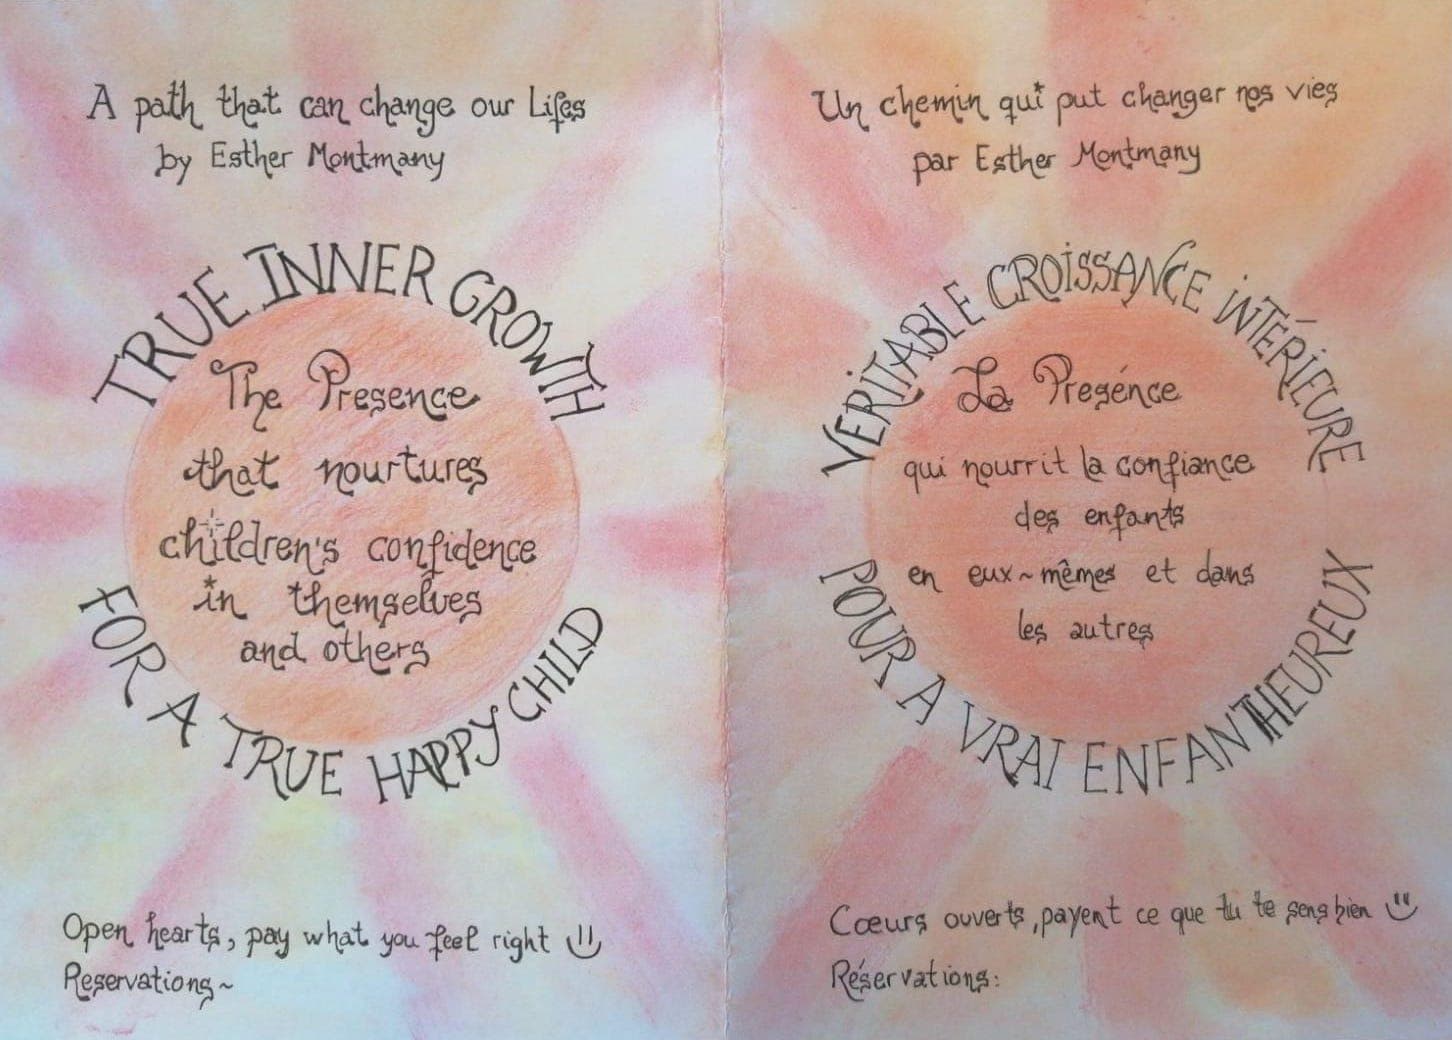 A path that can change our Lifes
by Esther Montmany
TRUE INNER GROWTH
The Presence
that nourtures
children's confidence
in themselves
and others
FOR A TRUE HAPPY CHILD
Open hearts, pay what you feel right
Reservations~
Un chemin qui put changer nos vies
par Esther Montmany
VERITABLE CROISSANCE INTÉRIEURE
La Presénce
qui nourrit la confiance
des enfants
en eux~mêmes et dans
les autres
POUR A VRAI ENFANT HEUREUX
Cœurs ouverts, payent ce que tu te sens bien
Réservations: